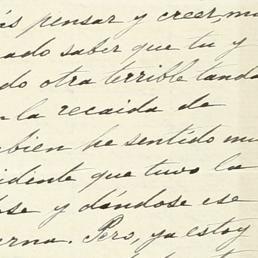 ás pensar y creer, mu
ado saber que tu y
do otra terrible tanda
la recaida de
bien he sentido mu
idente que tuvo la
se y dándose ese
erna. Pero, ya estoy